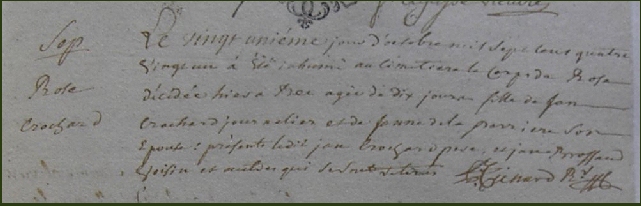 Sep
Rose
Crochard
Le vingt uniéme jour d'octobre mil sept cent quatre
vingt un á Eté inhumé au cimetiere le corps de Rose
décédée hier a agée de dix jours fille de Jan
Crochard journalier et de Janne de la parriere son
Epouse : présents ledit jan Crochard pere, et jan Brossard
Voisin et aultres qui se sont retirés